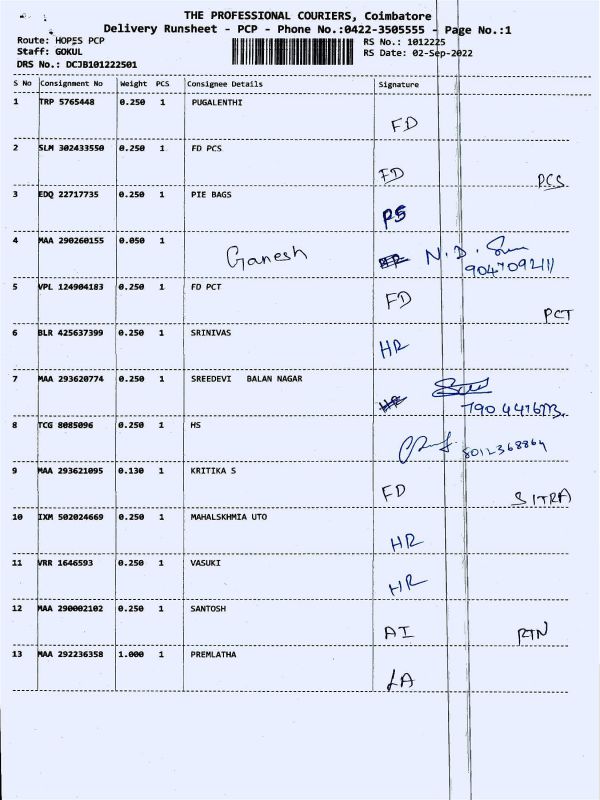 THE PROFESSIONAL COURIERS, Coimbatore
Delivery Runsheet - PCP - Phone No.:0422-3505555 - Page No.:1
Route: HOPES PCP RS No.: 1012225
Staff: GOKUL RS Date: 02-Sep-2022
DRS No.: DCJB101222501
S No Consignment No Weight PCS Consignee Details Signature
1 TRP 5765448 0.250 1 PUGALENTHI
FD
2 SLM 302433550 0.250 1 FD PCS
FD PCS
3 EDQ 22717735 0.250 1 PIE BAGS
PS
4 MAA 290260155 0.050 1
Ganesh N.D.
5 VPL 124904183 0.250 1 FD PCT
FD PCT
6 BLR 425637399 0.250 1 SRINIVAS
HR
7 MAA 293620774 0.250 1 SREEDEVI BALAN NAGAR
8 TCG 8085096 0.250 1 HS
8012368864
9 MAA 293621095 0.130 1 KRITIKA S
FD SITRA
10 IXM 502024669 0.250 1 MAHALSKHMIA UTO
HR
11 VRR 1646593 0.250 1 VASUKI
HR
12 MAA 290002102 0.250 1 SANTOSH
AI RTN
13 MAA 292236358 1.000 1 PREMLATHA
LA